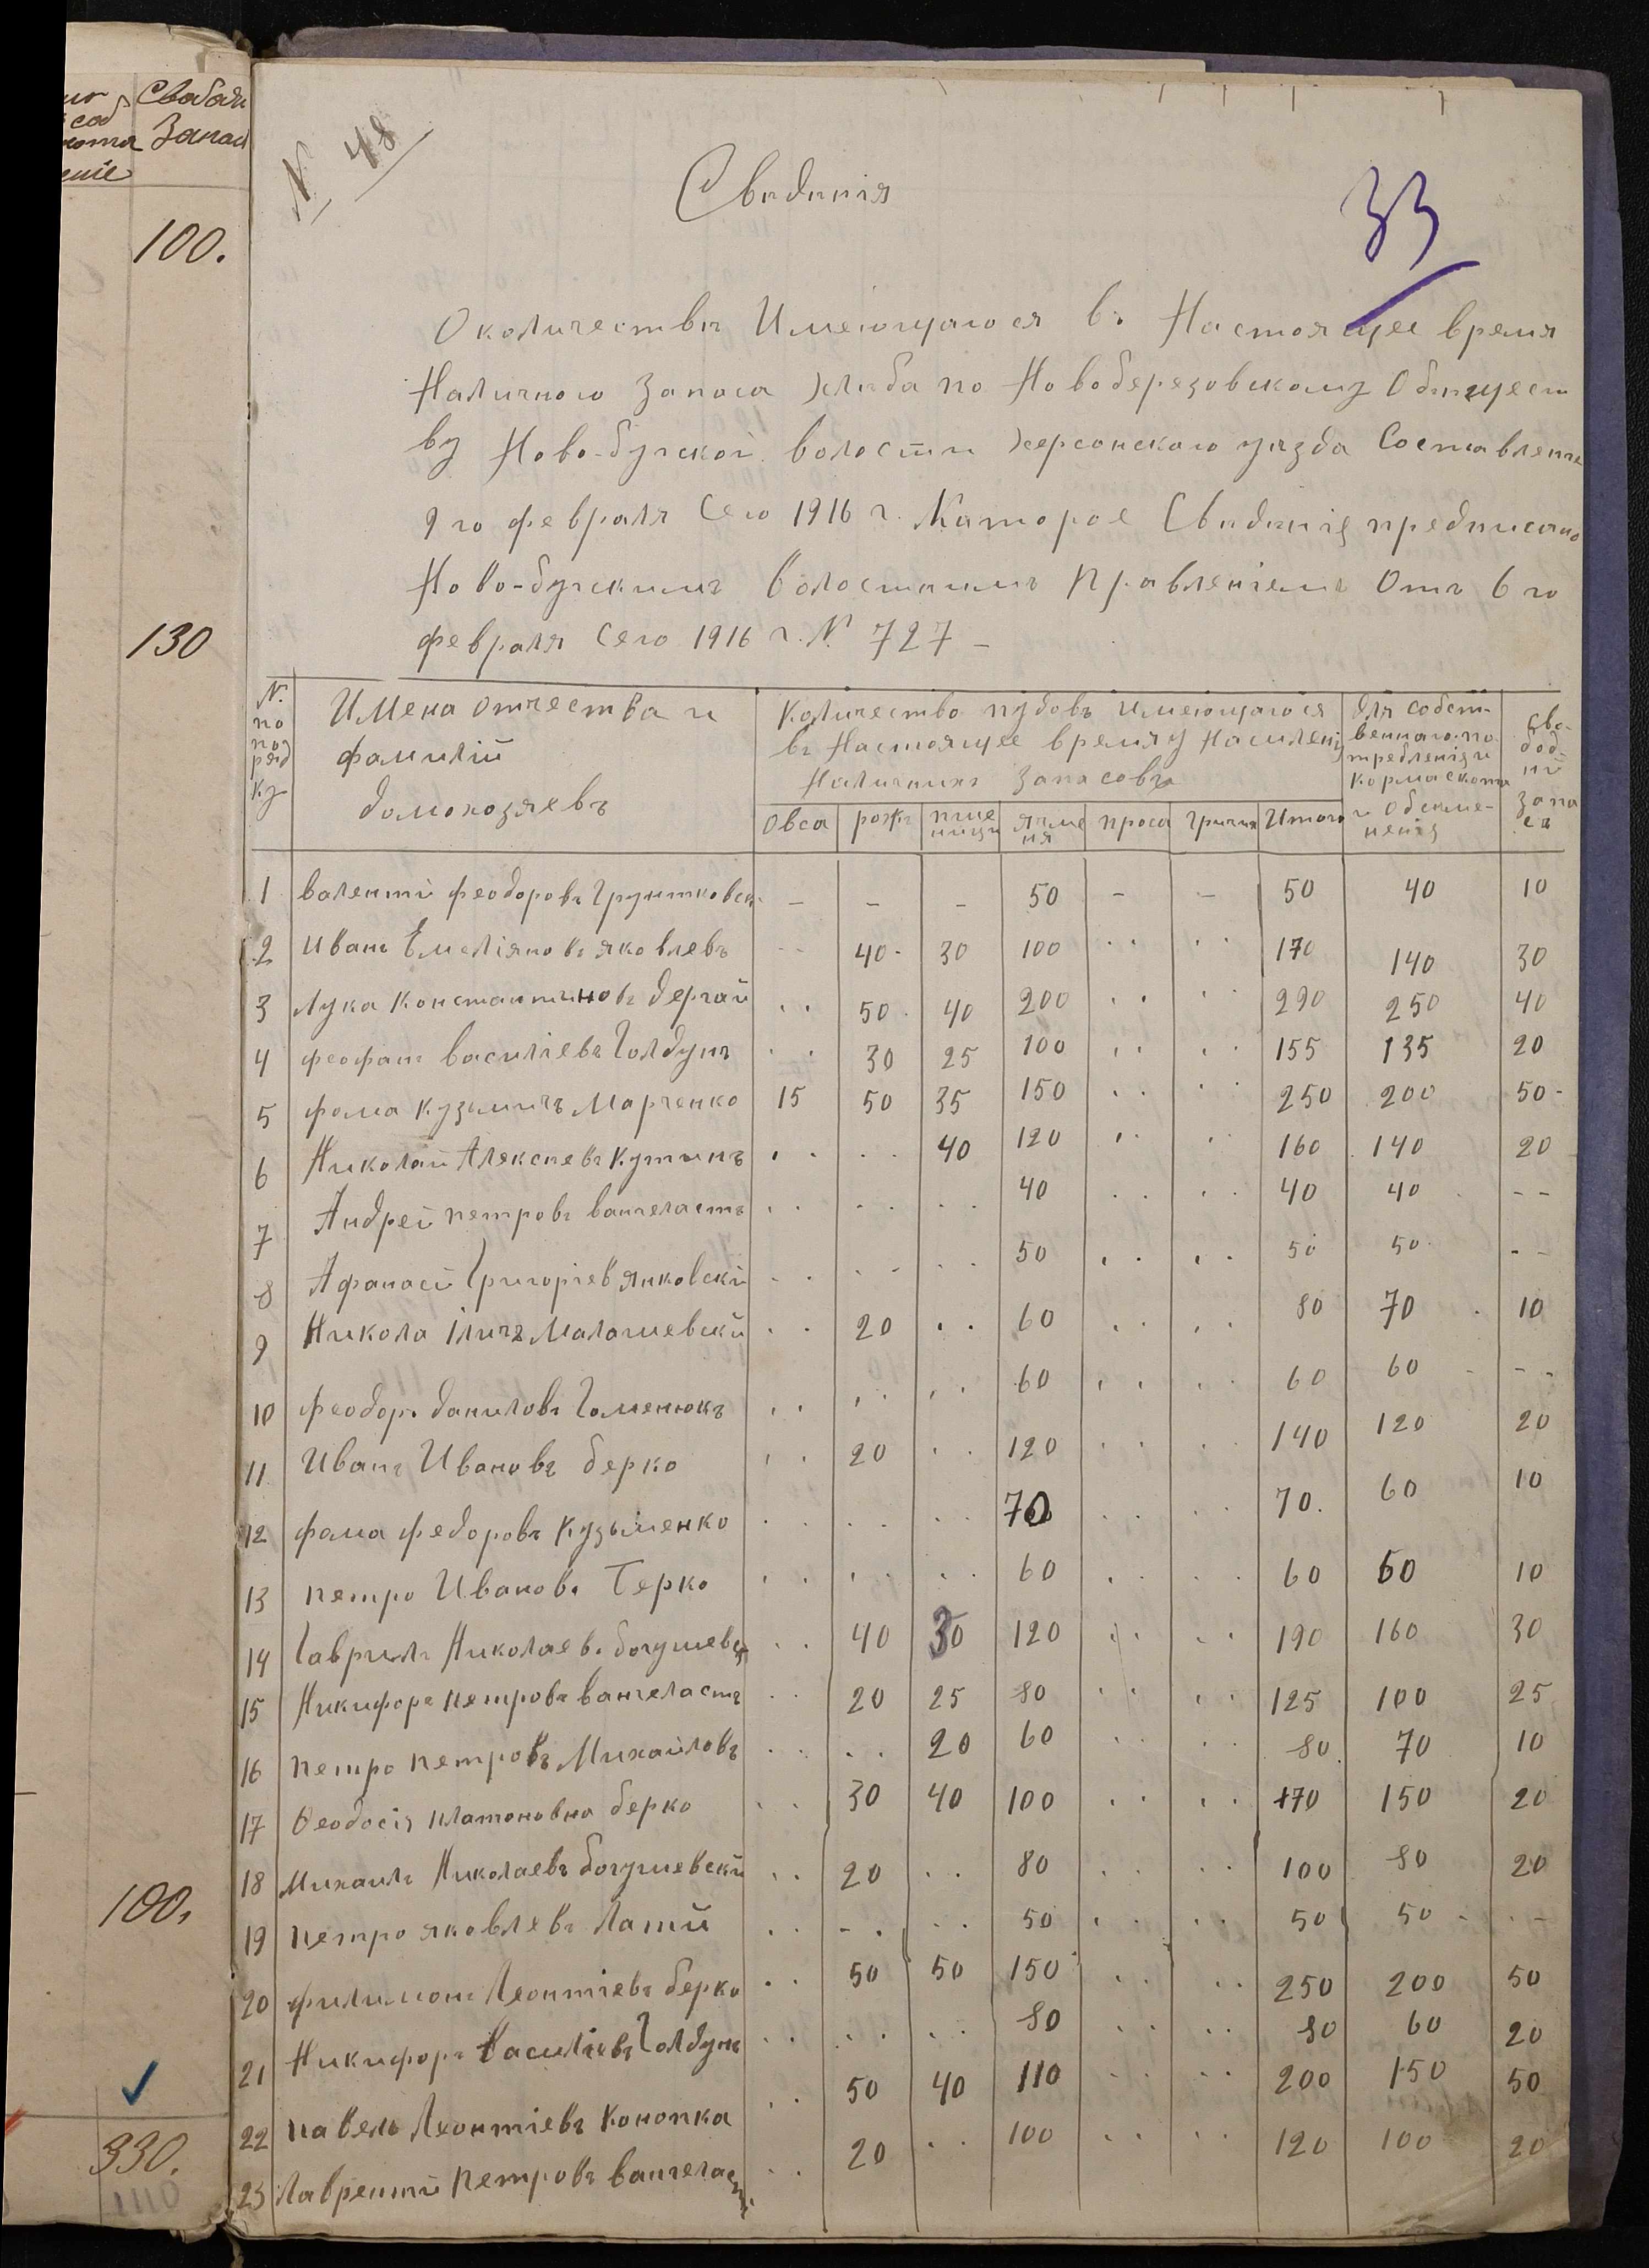 Свабодн
Запас
100.
130
100,
330.
1110
N 48
33
Свидинія
О количествѣ Имеющагося в. Настоящее время
Наличного Запаса хлиба по Новоберезовскому Обтщест
ву Ново-бугской волости херсонскаго уѣзда Составление
9 го февраля Сего 1916 г. Каторое Свидинія предписано
Ново-бугскимъ Волостнимъ Правленіемъ Отъ 6 го
февраля Сего 1916 г. N 727 –
N. по поряд ку | Имена отчества и фамилій домохозяевъ | Количество пудовъ имеющагося въ Настоящее время у Населенія Наличнихъ Запасовъ | Для собственнаго потребленія и корма скота и Обсименения | Сво-бод-ни запа съ
Овса | рожъ | пшеници | ячменя | проса | гричи | Итого
1 Валенти Феодоровъ Грунтковск – – – 50 – – 50 40 10
2 Иванъ Емеліяновъ яковлевъ – 40 30 100 .. .. 170 140 30
3 Лука Константиновъ дергай .. 50 40 200 .. .. 290 250 40
4 феофанъ Василіевъ Голдунъ .. 30 25 100 .. .. 155 135 20
5 фома Кузьмичъ Марченко 15 50 35 150 .. .. 250 200 50-
6 Николай Алексиевъ Кутинъ .. .. 40 120 .. .. 160 140 20
7 Андрей петровъ вангеластъ .. .. .. 40 .. .. 40 40 --
8 Афанасй Григоріев Янковскій .. .. .. 50 .. .. 50 50 --
9 Никола Іличъ Малашевскй .. 20 .. 60 .. .. 80 70 10
10 феодоръ даниловъ Гоменюкъ .. .. .. 60 .. .. 60 60 --
11 Иванъ Ивановъ берко .. 20 .. 120 .. .. 140 120 20
12 фама федоровъ Кузьменко .. .. .. 70 .. .. 70. 60 10
13 петро Ивановъ Берко .. .. .. 60 .. .. 60 50 10
14 Гаврилъ Николаевъ богушевск .. 40 30 120 .. .. 190 160 30
15 Никифоръ петровъ вангеластъ .. 20 25 80 .. .. 125 100 25
16 петро петровъ Михайловъ .. .. 20 60 .. .. 80 70 10
17 Феодосія платоновна берко .. 30 40 100 .. .. 170 150 20
18 Михаилъ Николаевъ богушевскй .. 20 .. 80 .. .. 100 80 20
19 петро яковлевъ Латій .. -. .. 50 .. .. 50 50 --
20 филимонъ Леонтіевъ берко .. 50 50 150 .. .. 250 200 50
21 Никифоръ Василіевъ Голдунъ .. .. .. 80 .. .. 80 60 20
22 павелъ Леонтіевъ Конопка .. 50 40 110 .. .. 200 150 50
23 Лаврентий петровъ вангеласт .. 20 .. 100 .. .. 120 100 20